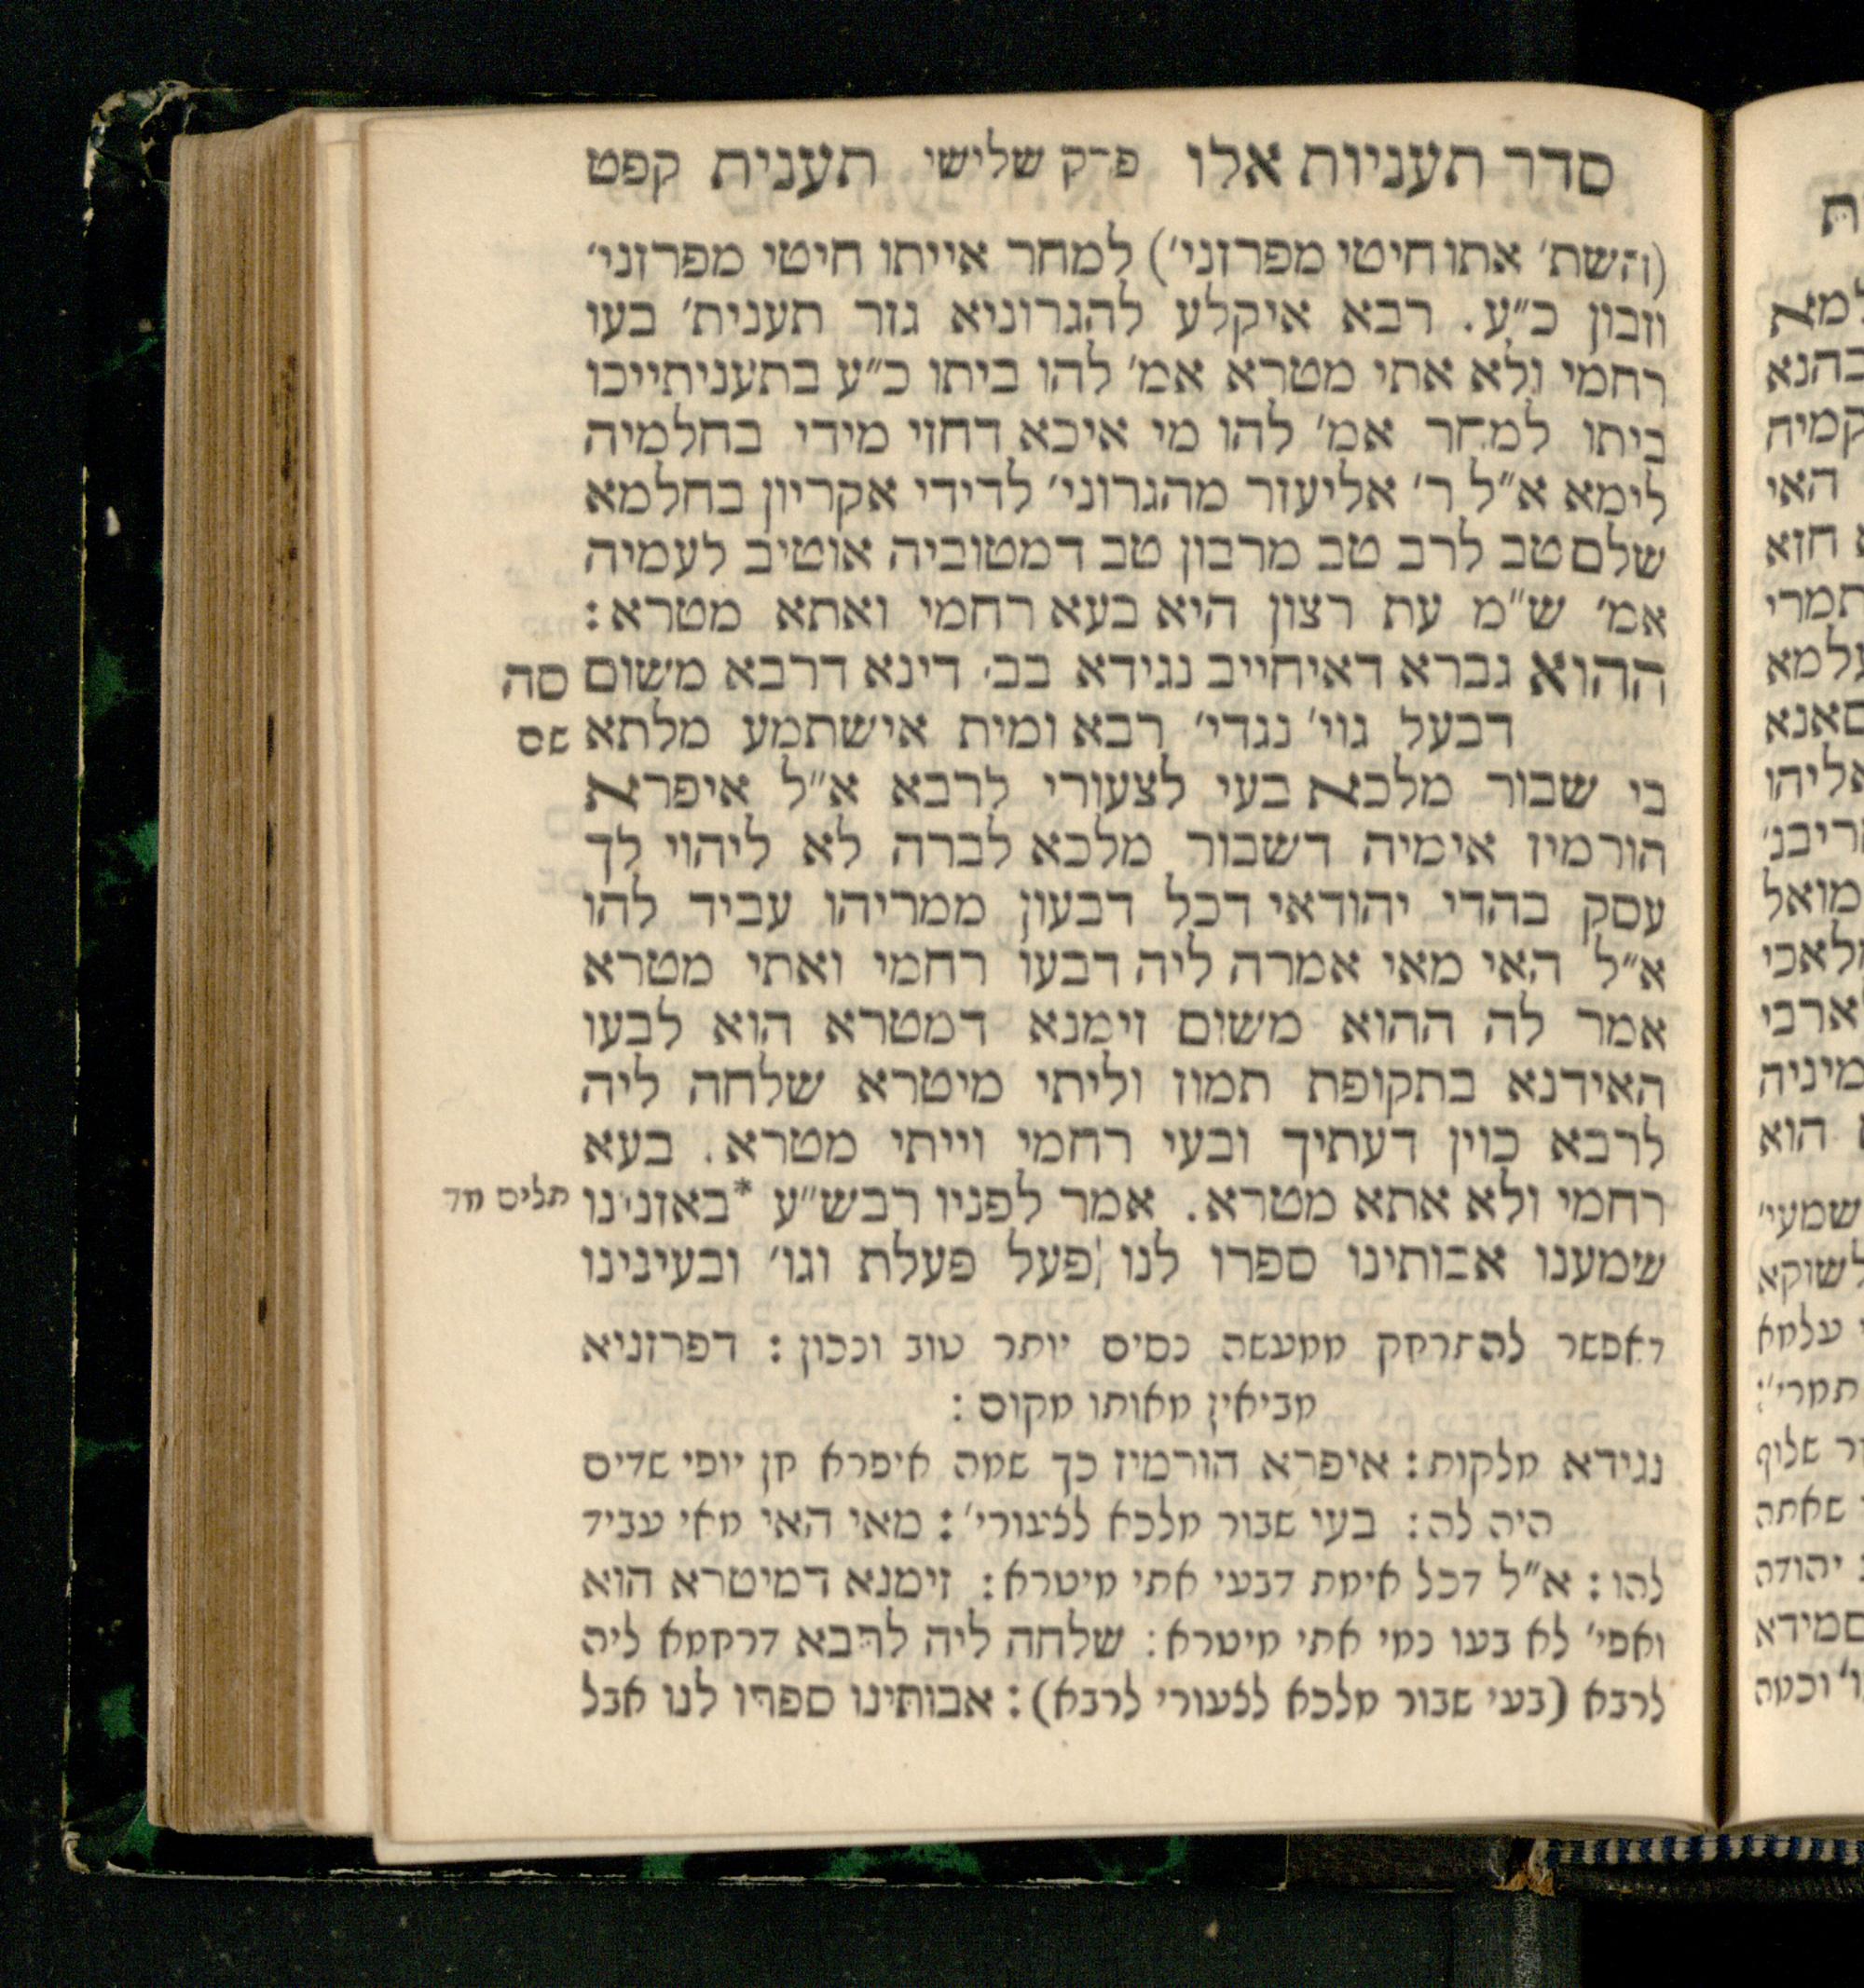 סדר תעניות אלו פרק שלישי תענית קפט
(והשת׳ אתו חיטי מפרזני׳) למחר אייתו חיטי מפרזני׳
וזבון כ״ע. רבא איקלע להגרוניא גזר תענית׳ בעו
רחמי ולא אתי מטרא אמ׳ להו ביתו כ״ע בתעניתייכו
ביתו למחר אמ׳ להו מי איכא דחזי מידי בחלמיה
לימא א״ל ר׳ אליעזר מהגרוני׳ לדידי אקריון בחלמא
שלם טב לרב טב מרבון טב דמטוביה אוטיב לעמיה
אמ׳ ש״מ עת רצון היא בעא רחמי ואתא מטרא:
ההוא גברא דאיחייב נגידא בב׳ דינא דרבא משום סה
דבעל גוי׳ נגדי׳ רבא ומית אישתמע מלתא שם
בי שבור מלכא בעי לצעורי לרבא א״ל איפרא
הורמיז אימיה דשבור מלכא לברה לא ליהוי לך
עסק בהדי יהודאי דכל דבעון ממריהו עביד להו
א״ל האי מאי אמרה ליה דבעו רחמי ואתי מטרא
אמר לה ההוא משום זימנא דמטרא הוא לבעו
האידנא בתקופת תמוז וליתי מיטרא שלחה ליה
לרבא כוין דעתיך ובעי רחמי וייתי מטרא. בעא
רחמי ולא אתא מטרא. אמר לפניו רבש״ע *באזנינו תלים מד
שמענו אבותינו ספרו לנו פעל פעלת וגו׳ ובעינינו
דאפשר להתרחק ממעשה נסים יותר טוב ונכון: דפרזניא
מביאין מאותו מקום:
נגידא מלקות: איפרא הורמיז כך שמה איפרא חן יופי שדים
היה לה: בעי שבור מלכא לצעורי׳: מאי האי מאי עביד
להו: א״ל דכל אימת דבעי אתי מיטרא: זימנא דמיטרא הוא
ואפי׳ לא בעו נמי אתי מיטרא: שלחה ליה לרבא דרחמא ליה
לרבא (בעי שבור מלכא לצעורי לרבא): אבותינו ספרו לנו אבל